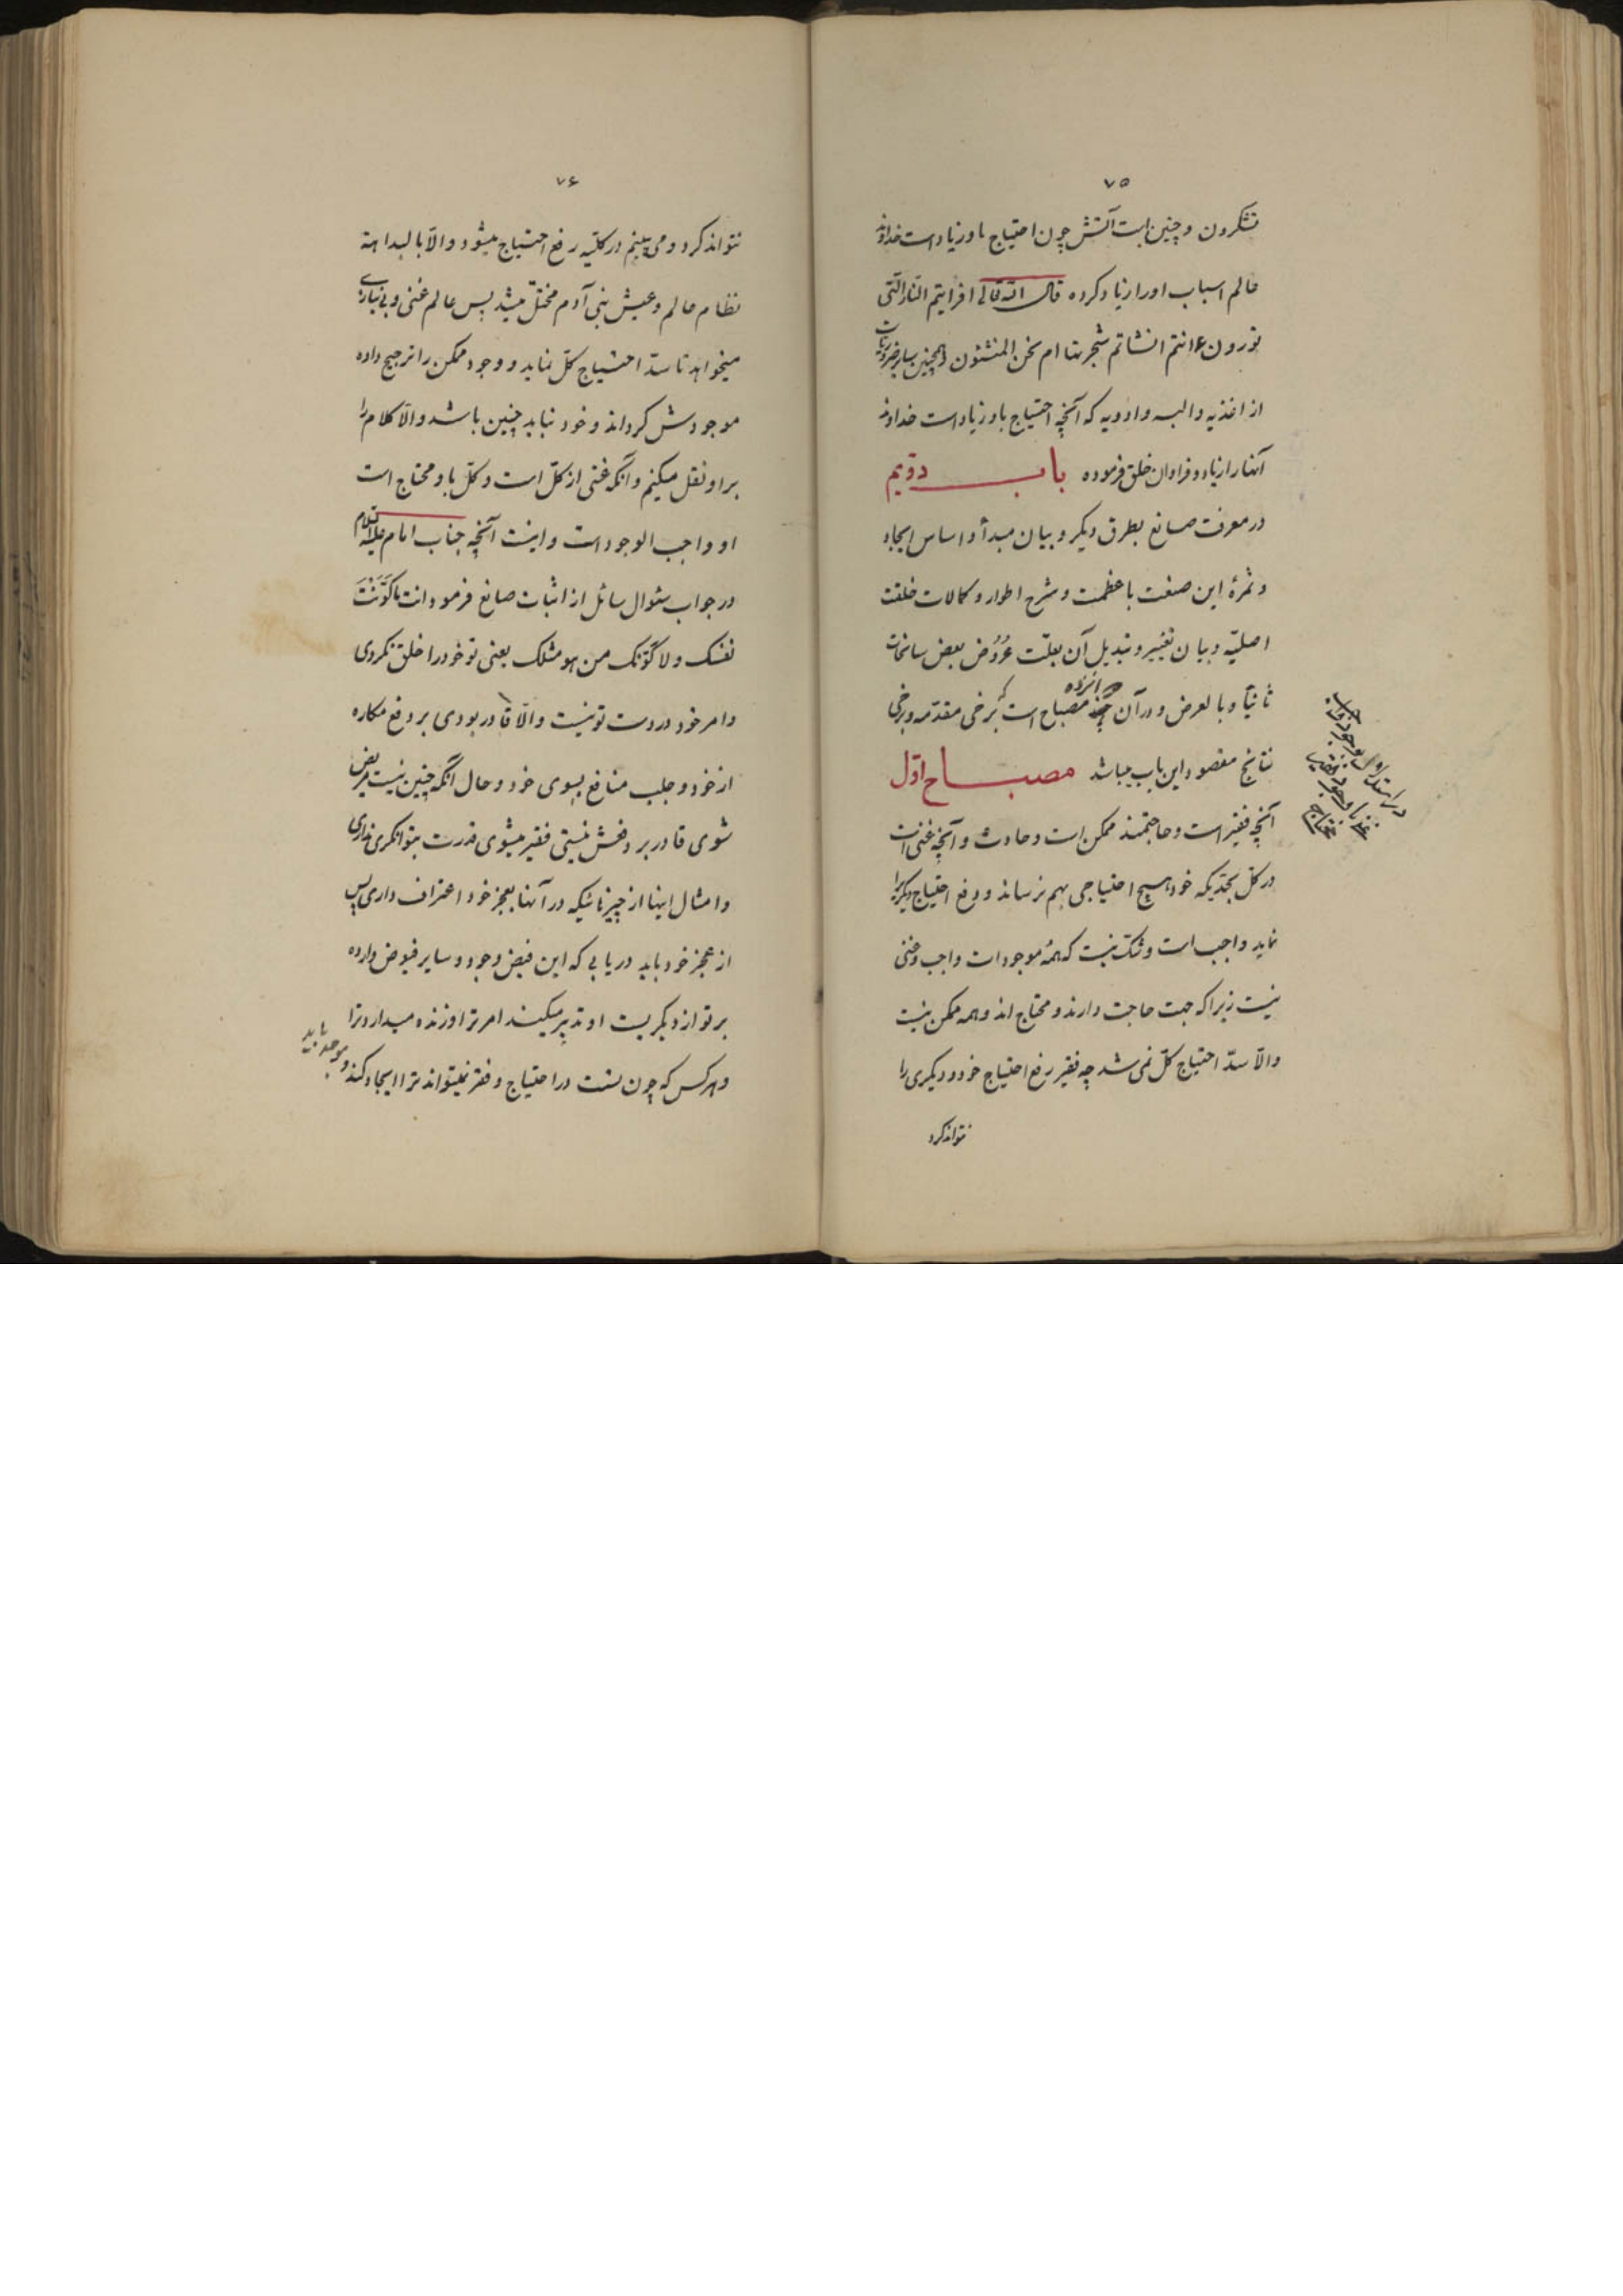 ۷۵
تشکرون و چنین است آتش چون احتیاج باو زیاد است خداوند
عالم اسباب او را زیاد کرده قال الله تعالی افرایتم النار التی
تورون ءانتم انشاتم شجرتها ام نحن المنشئون و همچنین سایر ضروریات
از اغذیه و البسه و ادویه که آنچه احتیاج باو زیاد است خداوند
آنها را زیاد و فراوان خلق فرموده باب دویم
در معرفت صانع بطرق دیگر و بیان مبدأ و اساس ایجاد
و ثمرهٔ این صنعت با عظمت و شرح اطوار و کمالات خلقت
اصلیّه و بیان تغییر و تبدیل آن بعلّت عُرُوض بعض سانحات
ثانیاً و بالعرض و در آن چند مصباح است که برخی مقدّمه و برخی
نتایج مقصود این باب میباشد مصباح اوّل
آنچه فقیر است و حاجتمند ممکن است و حادث و آنچه غنی است
در کلّ بحدّیکه خود هیچ احتیاجی بهم نرساند و رفع احتیاج دیگری را
نماید واجب است و شکّ نیست که همهٔ موجودات واجب و غنی
نیست زیرا که جهت حاجت دارند و محتاج اند و همه ممکن نیست
والّا سدّ احتیاج کلّ نمی شد چه فقیر رفع احتیاج خود و دیگری را
نتواند کرد
در استدلال بوجود واجب
۷۶
نتواند کرد و می بینم در کلّیه رفع احتیاج میشود و الّا بالبداهة
نظام عالم و عیش بنی آدم مختلّ میشد پس عالم غنی و بی نیازی
میخواهد تا سدّ احتیاج کلّ نماید و وجود ممکن را ترجیح داده
موجودش کرداند و خود نباید چنین باشد والّا کلام را
بر او نقل میکنیم و آنکه غنی از کلّ است و کلّ باو محتاج است
او واجب الوجود است و اینست آنچه جناب امام علیه السلام
در جواب سئوال سائل از اثبات صانع فرمود انت ما کَوَّنْتَ
نفسک و لا کوّنک من هو مثلک یعنی تو خود را خلق نکردی
و امر خود در دست تو نیست والّا قادر بودی بر دفع مکاره
از خود و جلب منافع بسوی خود و حال آنکه چنین نیست مریض
شوی قادر بر دفعش نیستی فقیر میشوی قدرت بتوانکری نداری
و امثال اینها از چیزهائیکه در آنها بعجز خود اعتراف داری پس
از عجز خود باید دریابی که این فیض وجود و سایر فیوض وارده
بر تو از دیگریست او تدبیر میکند امر ترا و زنده میدارد ترا
و هر کس که چون تست در احتیاج و فقر نمیتواند ترا ایجاد کند و موجد باید